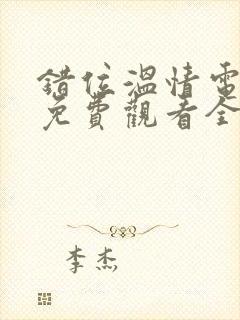 錯位溫情電
免費觀看全
李杰